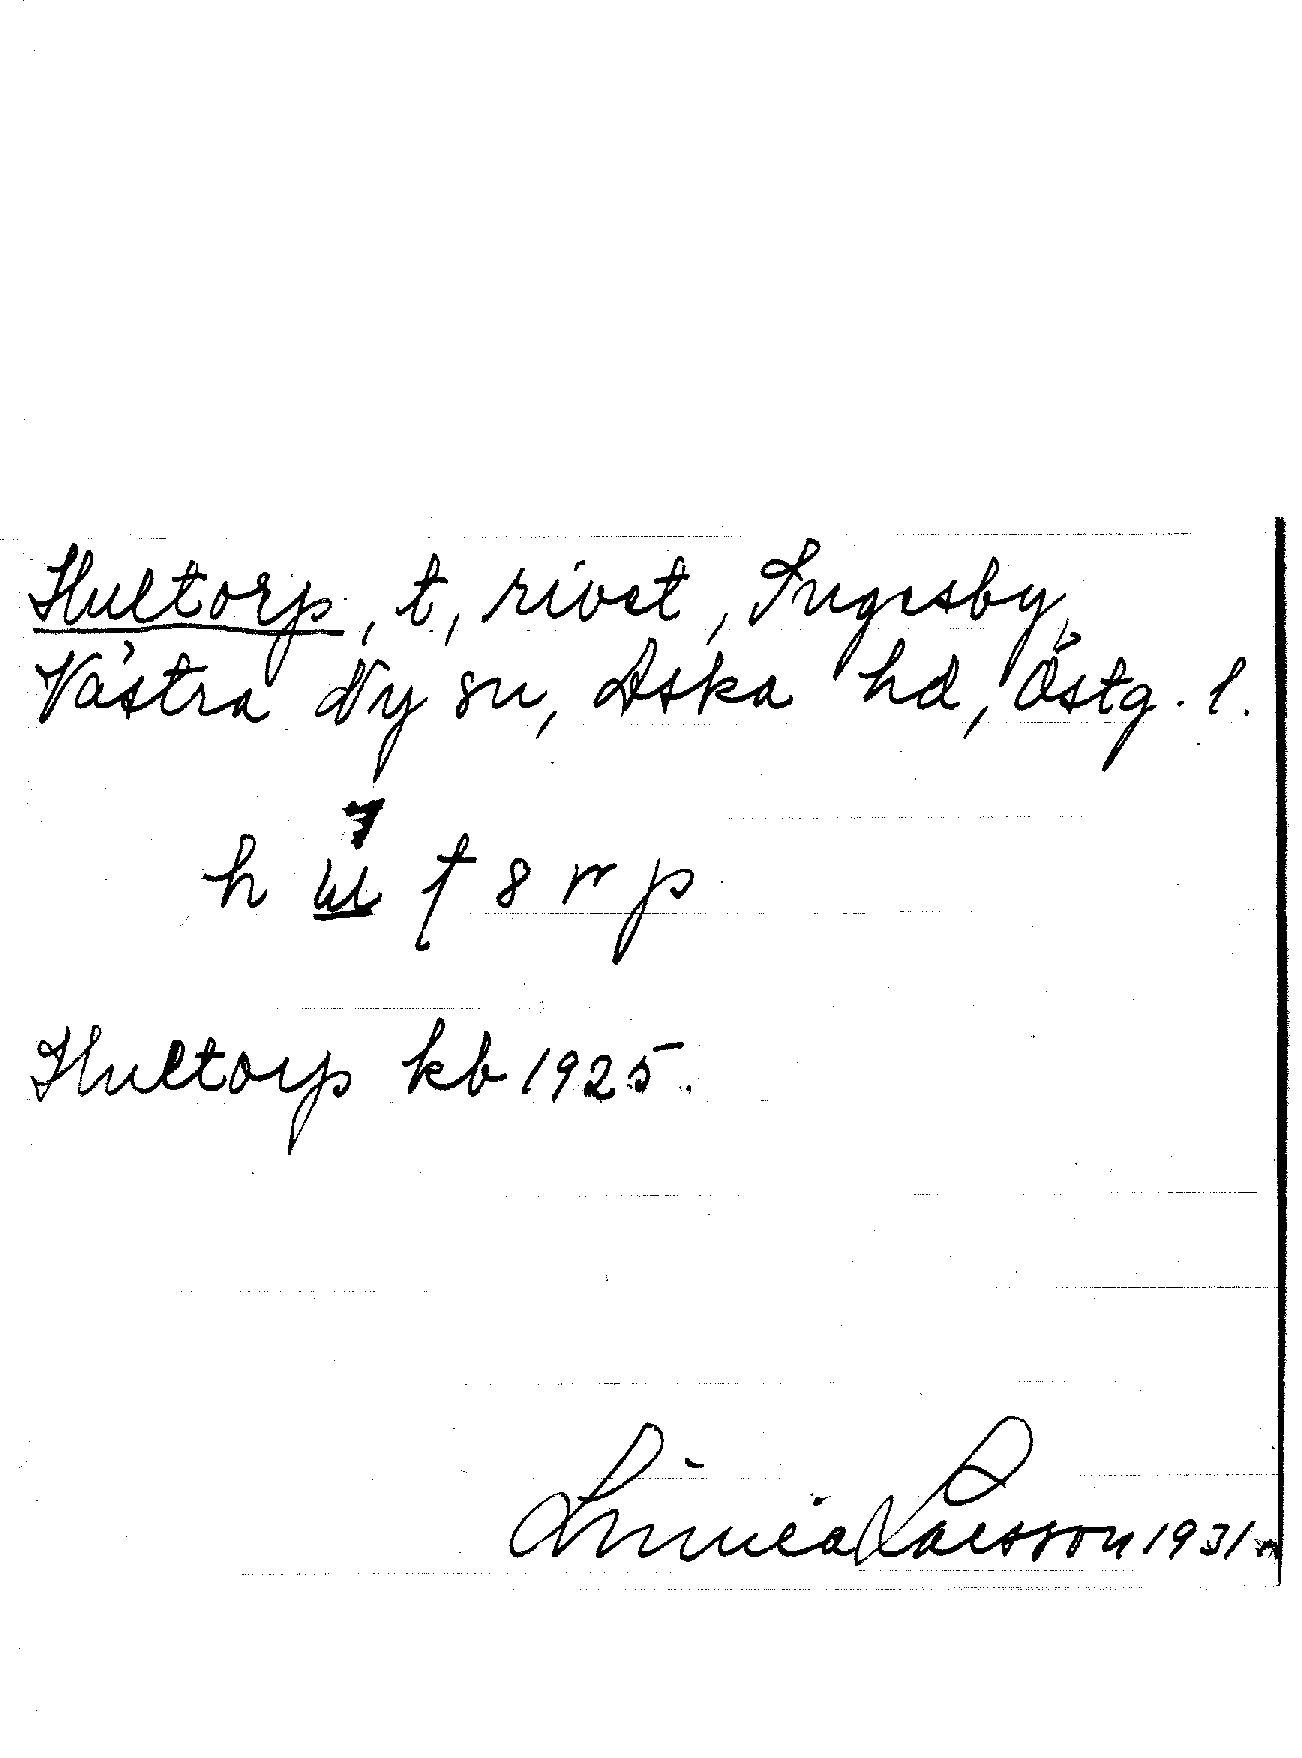 Hultorp, t, rivet, Ingesby,
Västra Ny sn, Aska hd, Östg. l.
Hultorp kb 1925.
Linnéa Larsson 1931